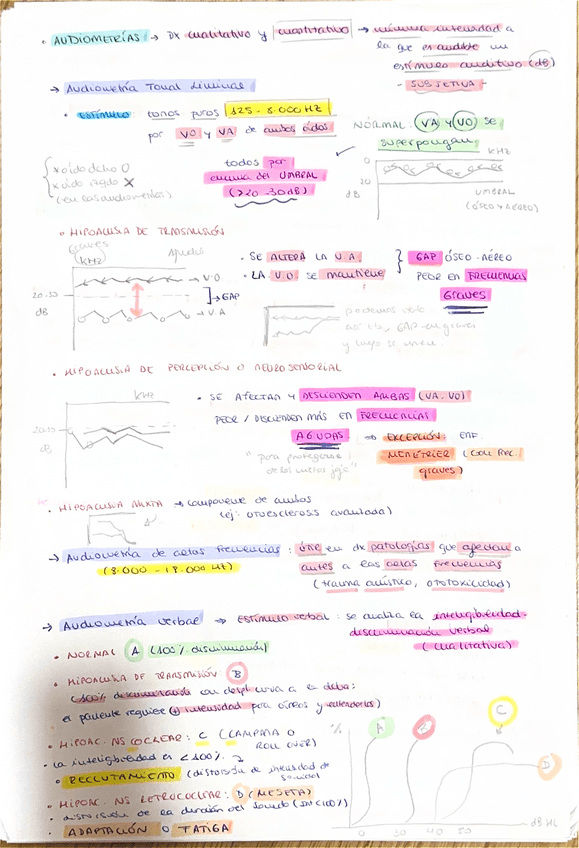 • AUDIOMETRÍAS → DX cualitativo y cuantitativo → mínima intensidad a
la que es audible un
estímulo auditivo (dB)
- SUBJETIVA -
→ Audiometría Tonal Liminar
• ESTÍMULO: tonos puros 125 - 8.000 HZ
por VO y VA de ambos oídos
NORMAL. VA y VO se
superpongan
x oído dcho O
x oído izqdo X
(en las audiometrías)
todos por
encima del UMBRAL
(>20-30dB)
KHZ
0
20
dB
UMBRAL
(ÓSEO Y AÉREO)
• HIPOACUSIA DE TRANSMISIÓN
Graves
KHZ
Agudos
20-30
dB
→ V.O
→ GAP
→ V.A
• SE ALTERA LA V.A
• LA V.O se mantiene
GAP ÓSEO-AÉREO
PEOR EN FRECUENCIAS
GRAVES
podemos verlo
así tb, GAP en graves
y luego se unen
• HIPOACUSIA DE PERCEPCIÓN O NEUROSENSORIAL
KHZ
20-30
dB
• SE AFECTAN Y DESCIENDEN AMBAS (VA-VO)
PEOR / DESCIENDEN MÁS EN FRECUENCIAS
AGUDAS → EXCEPCIÓN: ENF.
MENETRIER (COM FREC. graves)
"para protegerse
de los
• HIPOACUSIA MIXTA → componente de ambos
(ej: otoesclerosis avanzada)
→ Audiometría de altas frecuencias: útil en dx patologías que afectan a
(8.000 - 18.000 HZ)
antes a las altas frecuencias
(trauma acústico, ototoxicidad)
→ Audiometría verbal → Estímulo verbal: se analiza la inteligibilidad-
discriminación verbal
(cualitativa)
• NORMAL A (100% discriminación)
• HIPOACUSIA DE TRANSMISIÓN B
(100% discriminación con despl curva a la dcha:
el paciente requiere intensidad para oírlos y entenderlos)
• HIPOAC. NS COCLEAR: C (CAMPANA O
ROLL OVER)
• la inteligibilidad es <100%.
• RECLUTAMIENTO (distorsión de intensidad de
sonido)
• HIPOAC. NS RETROCOCLEAR: D (MESETA)
• distorsión de la duración del sonido (INT<100%)
• ADAPTACIÓN O FATIGA
%
A
B
C
D
0
30
40
50
dB HL